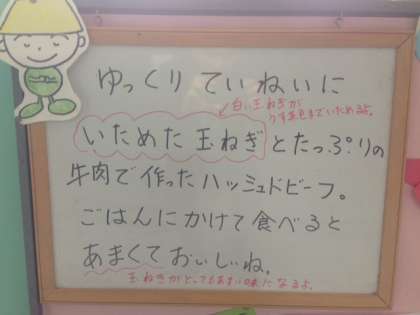 ゆっくり ていねいに
白い玉ねぎが
うす茶色までいためるよ。
いためた 玉ねぎ とたっぷりの
牛肉で 作った ハッシュドビーフ。
ごはんにかけて 食べると
あまくて おいしいね。
玉ねぎがとってもあまい味になるよ。